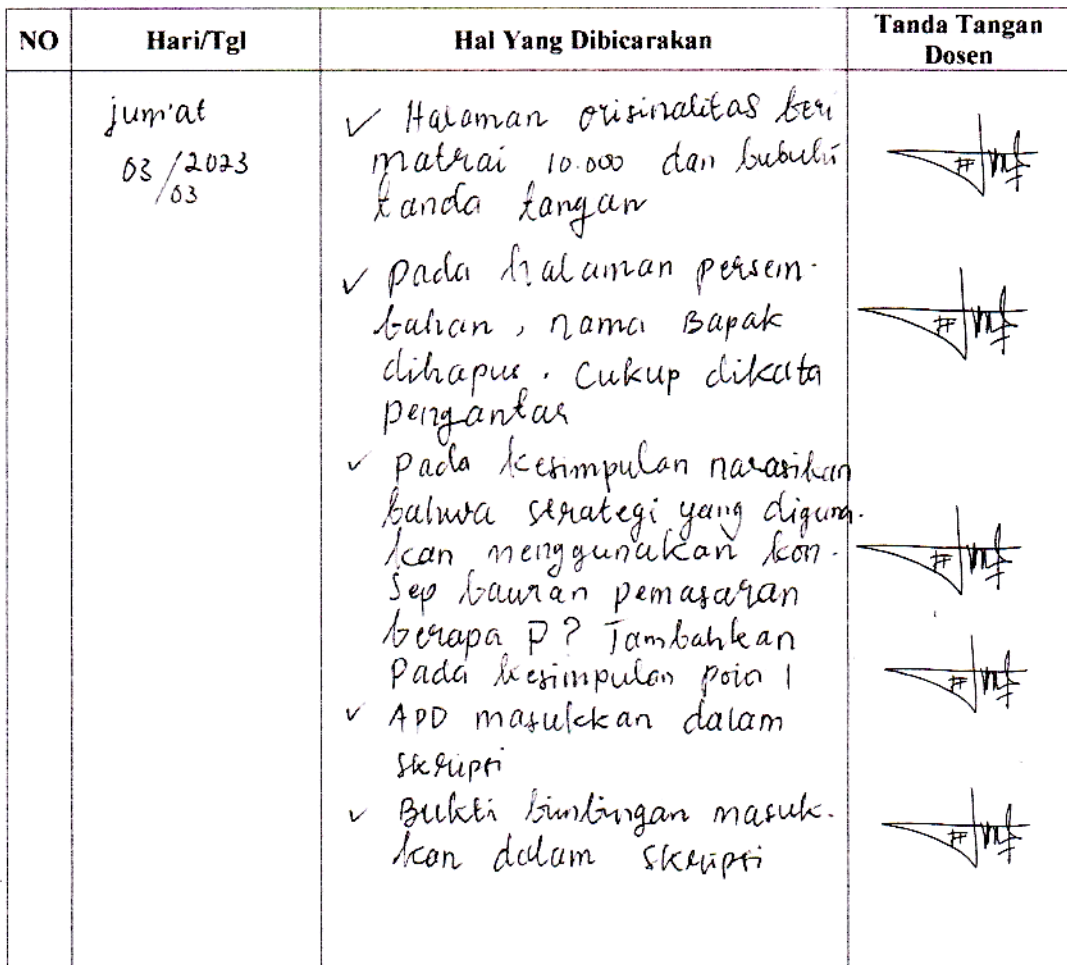 NO Hari/Tgl Hal Yang Dibicarakan Tanda Tangan
Dosen
jum'at
03/2023
/03
✓ Halaman orisinalitas beri
matrai 10.000 dan bubuhi
tanda tangan
✓ pada halaman persem-
bahan, nama Bapak
dihapus. Cukup dikata
pengantar
✓ pada kesimpulan narasikan
bahwa strategi yang diguna-
kan menggunakan kon-
sep bauran pemasaran
berapa P? Tambahkan
Pada kesimpulan poin 1
✓ APD masukkan dalam
skripsi
✓ Bukti bimbingan masuk-
kan dalam skripsi